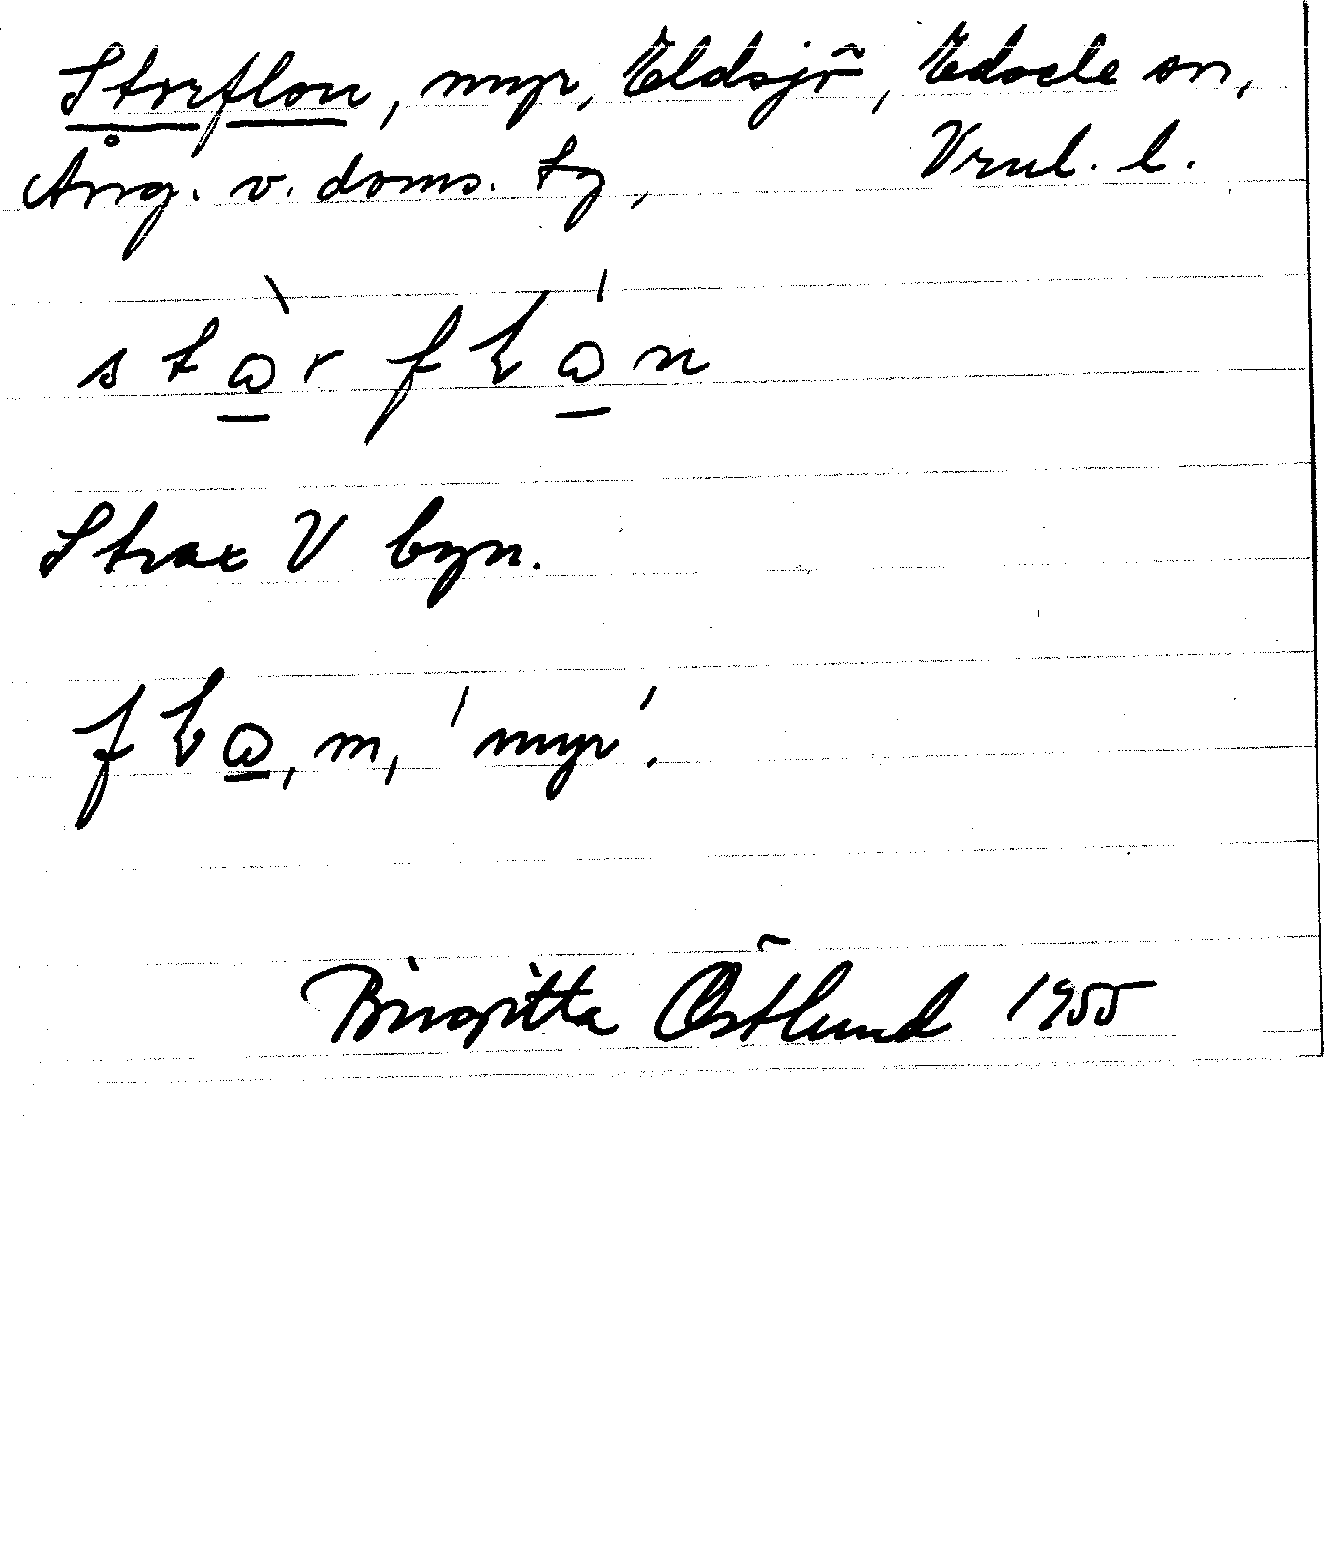 Storflon, myr, Eldsjö, Edsele sn,
Ång. v. doms. tg, Vnl. l.
Strax V byn.
m, 'myr'.
Birgitta Östlund 1955